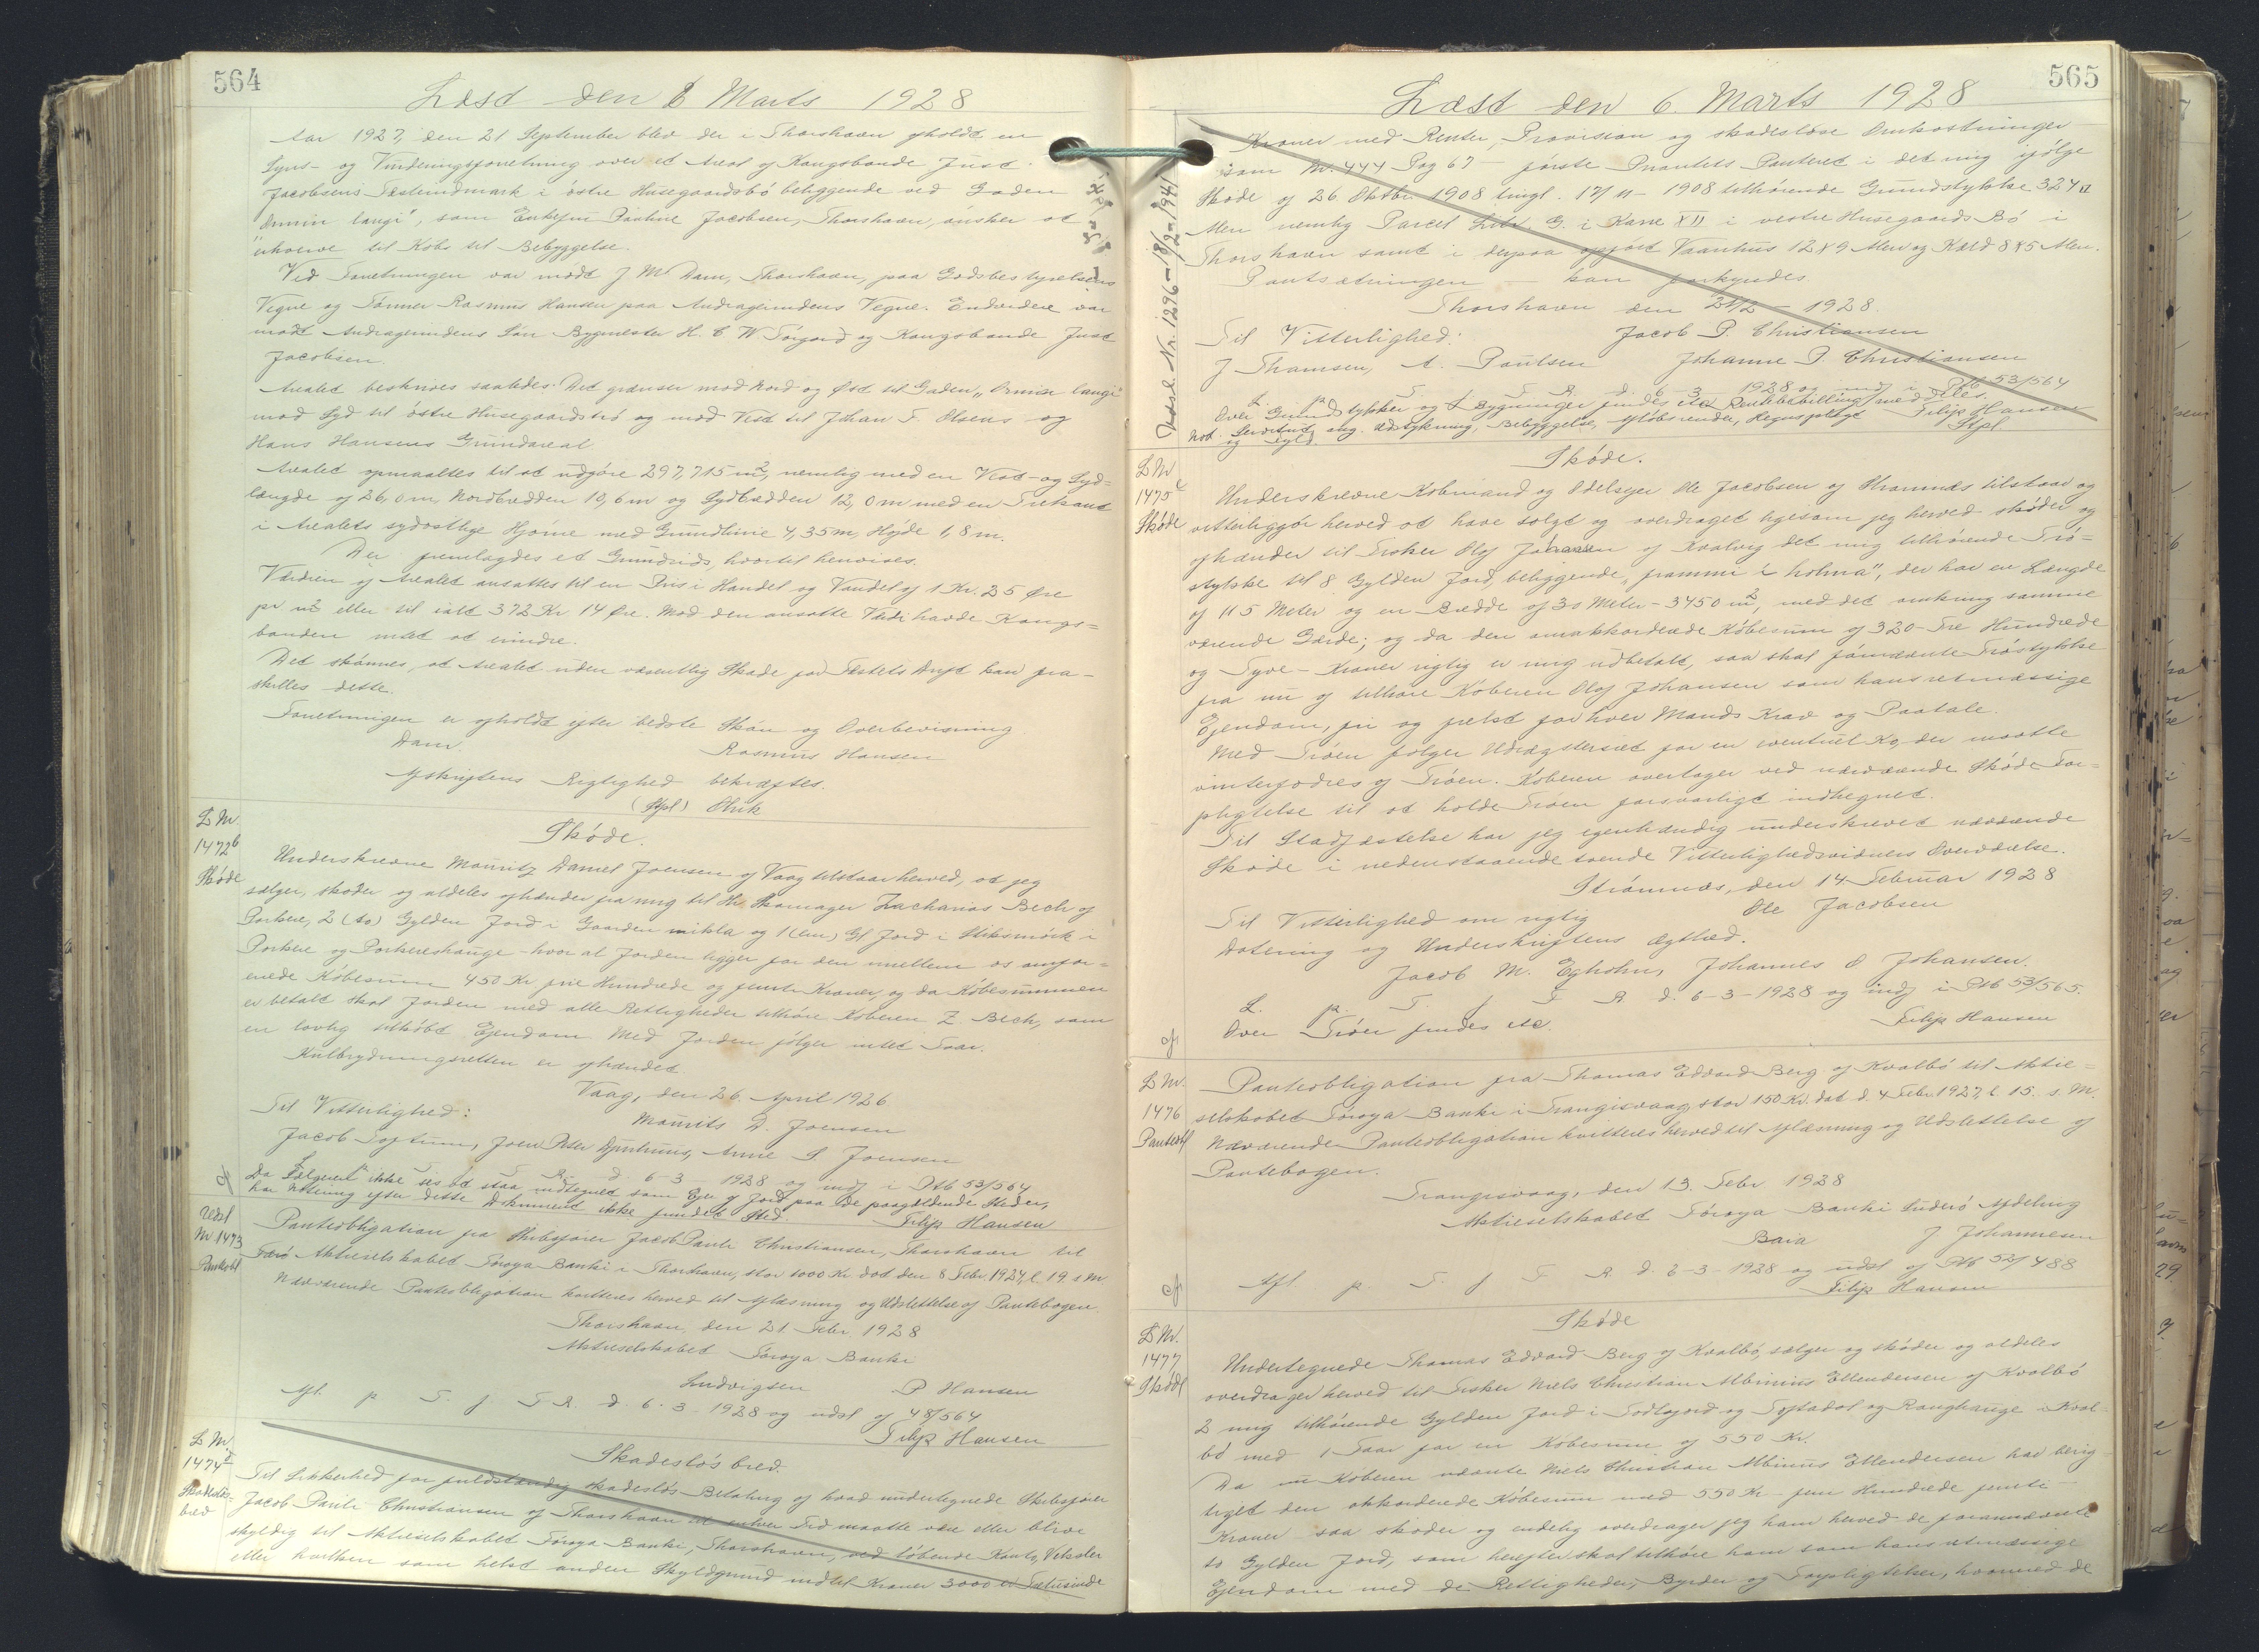 564
Læst den 6 Marts 1928
Aar 1927, den 21 September blev der i Thorshavn afholdt en
Syns- og Vurderingsforretning over et Areal af Kongsbonde Just
Jacobsens Fæsteindmark i östre Husegaardsbö beliggende ved Gaden
"Ormin langi", som Enkefru Pauline Jacobsen, Thorshavn, önsker at
erhverve til Köbs til Bebyggelse.
Ved Forretningen var mödt J M Dam, Thorshavn, paa Godsbestyrelsens
Vegne og Tömrer Rasmus Hansen paa Andragerindens Vegne. Endvidere var
mödt Andragerindens Sön Bygmester H. C. W. Tórgarð og Kongsbonde Just
Jacobsen.
Arealet beskrives saaledes: Det grænser mod Nord og Öst til Gaden "Ormin langi"
mod Syd til östre Husegaardsbö og mod Vest til Johan F. Olsens og
Hans Hansens Grundareal
Arealet opmaaltes til at udgöre 297,715 m², nemlig med en Vest- og Syd-
længde af 26,0 m, Nordbredden 10,6 m og Sydbredden 12,0 m med en Trekant
i Arealets sydostlige Hjörne med Grundlinie 4,35 m, Höjde 1,8 m.
Der fremlagdes et Grundrids, hvortil henvises.
Værdien af Arealet ansattes til en Pris i Handel og Vandel af 1 Kr. 25 Öre
pr m² eller til ialt 372 Kr 14 Öre. Mod den ansatte Værdi havde Kongs-
bonden intet at erindre.
Det skönnes, at Arealet uden væsentlig Skade for Fæstets Drift kan fra-
skilles dette.
Forretningen er afholdt efter bedste Skön og Overbevisning
Dam. Rasmus Hansen
Afskriftens Rigtighed bekræftes.
(Stpl) Ölrik
L Nr 1472b Sköde
Sköde.
Underskrevne Mouritz Daniel Joensen af Vaag tilstaar herved, at jeg
sælger, sköder og aldeles afhænder fra mig til Hr. Skomager Zacharias Bech af
Porkere, 2 (to) Gylden Jord i Gaarden mikla og 1 (en) Gl Jord i
Porkere og Porkereshauge - hvor at Jorden ligger for den imellem os omfor-
enede Köbesum 450 Kr fire Hundrede og femti Kroner, og da Köbesummen
er betalt skal Jorden med alle Rettigheder tilhöre Köberen Z. Bech, som
en lovlig tilköbt Ejendom Med Jorden fölger intet Faar.
Kulbrydningsretten er afhændet
Vaag, den 26 April 1926
Til Vitterlighed: Mourits D. Joensen
Jacob Toftum, Joen Peter Djurhuus, Anne S Joensen
L. p. T. f. F. R. d. 6-3 1928 og indf i Ptb 53/564
Da Sælgeren ikke ses at staa indtegnet som Ejer af Jord paa de paagældende Steder,
har Notering efter dette Dokument ikke fundet Sted. Filip Hansen
Udsl Nr 1473 Panteobl
Panteobligation fra Skibsförer Jacob Pauli Christiansen, Thorshavn til
Færö Aktieselskabet Föroya Banki i Thorshavn, stor 1000 Kr dat den 8 Febr. 1924, l. 19 s M
Nærværende Panteobligation kvitteres herved til Aflæsning og Udslettelse af Pantebogen.
Thorshavn, den 21 Febr. 1928
Aktieselskabet Föroya Banki
Ludvigsen P Hansen
Afl. p. T. f. F. R. d. 6-3-1928 og udsl af 48/564
Filip Hansen
L Nr 1474 Skadeslös-brev
Skadeslös brev.
Til Sikkerhed for fuldstændig skadeslös Betaling af hvad undertegnede Skibsförer
Jacob Pauli Christiansen af Thorshavn til enhver Tid maatte være eller blive
skyldig til Aktieselskabet Föroya Banki, Thorshavn, ved löbende Konto, Veksler
eller hvilken som helst anden Skyldgrund indtil Kroner 3000 er Tretusinde
565
Læst den 6. Marts 1928
Udsl. Nr. 1296 - 18/2-1941
Kroner med Renter, Provision og skadeslöse Omkostninger
som Nr. 444 Pag 67 - förste Prioritets Panteret i det mig ifölge
Sköde af 26. Oktbr 1908 tingl. 17/11-1908 tilhörende Grundstykke 324 □
Alen nemlig Parcel Litr. G. i Karre XII i vestre Husegaards Bö i
Thorshavn samt i derpaa opfört Vaanhus 12x9 Alen og Kæld 8x5 Alen.
Pantsætningen - kan forkyndes.
Thorshavn den 21/2 - 1928.
Til Vitterlighed: Jacob P. Christiansen
J Thomsen, A. Poulsen Johanne P. Christiansen
L. p. T. f. F. R. d. 6-3 1928 og indf i Ptb 53/564
Over Grundstykker og Bygninger findes etc Rentebetilling meddeles.
Not. Servitut ang. Udstykning, Bebyggelse, aflöbsrender, Hegnspligt Filip Hansen
og Stpl
L Nr 1475 Sköde
Sköde.
Underskrevne Köbmand og Odelsejer Ole Jacobsen af Strömnæs tilstaar og
vitterliggjör herved at have solgt og overdraget ligesom jeg herved sköder og
afhænder til Fisker Olaf Johansen af Kvalvig det mig tilhörende Trö-
stykke til 8 Gylden Jord, beliggende "frammi í holma", der har en Længde
af 115 Meter og en Bredde af 30 Meter - 3450 m², med det omkring samme
værende Gærde; og da den omakkorderede Köbesum af 320 - Tre Hundrede
og Tyve - Kroner rigtig er mig udbetalt, saa skal fornævnte Tröstykke
fra nu af tilhöre Köberen Olaf Johansen som hans retmæssige
Ejendom, fri og frelst for hver Mands Krav og Paatale.
Med Tröen fölger Udrægtsret for en eventuel Ko, der maatte
vinterfodres af Tröen. Köberen overtager ved nærværende Sköde For-
pligtelse til at holde Tröen forsvarligt indhegnet.
Til Stadfæstelse har jeg egenhændig underskrevet nærværende
Sköde i nedenstaaende tvende Vitterlighedsvidners Overværelse.
Strömnæs, den 14 Februar 1928
Til Vitterlighed om rigtig Ole Jacobsen
Datering og Underskriftens Ægthed.
Jacob M. Egholm, Johannes O Johansen.
L. p. T. f. F. R. d. 6-3-1928 og indf i Ptb 53/565.
Over Tröer findes etc. Filip Hansen
L Nr. 1476 Panteobl
Panteobligation fra Thomas Edvard Berg af Kvalbö til Aktie-
selskabet Föroya Banki i Trangisvaag, stor 150 Kr. dat d. 4 Febr 1927, l. 15. s. M.
Nærværende Panteobligation kvitteres herved til Aflæsning og Udslettelse af
Pantebogen.
Trangisvaag, den 13. Febr 1928
Aktieselskabet Föroya Banki Suderö Afdeling
J Johannesen
Afl. p. T. f. F. R. d. 6-3-1928 og udsl af Ptb 52/488
Filip Hansen
L Nr. 1477 Sköde
Sköde
Undertegnede Thomas Edvard Berg af Kvalbö, sælger og sköder og aldeles
overdrager herved til Fisker Niels Christian Albinius Ellendersen af Kvalbö
2 mig tilhörende Gylden Jord i og og i Kval-
bö med 1 Faar for en Köbesum af 550 Kr.
Da nu Köberen nævnte Niels Christian Albinius Ellendersen har berig-
tiget den akkorderede Köbesum med 550 Kr - fem Hundrede femti -
Kroner - saa sköder og endelig overdrager jeg ham herved de forannævnte
to Gylden Jord, som herefter skal tilhöre ham som hans retmæssige
Ejendom med de Rettigheder, Byrder og Forpligtelser, hvormed de